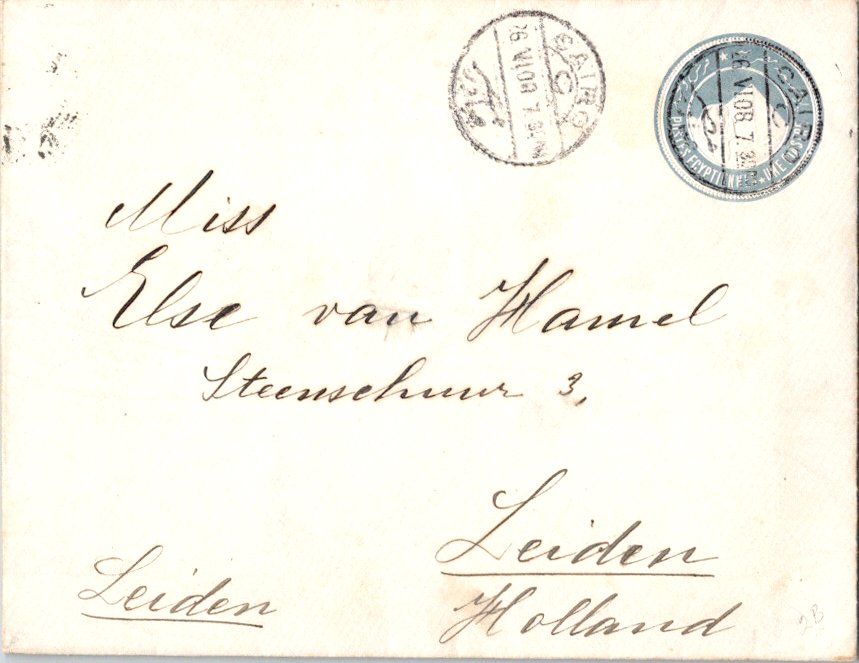 CAIRO
C
26.VI.08.7.30
POSTES EGYPTIENNES
CAIRO
C
26.VI.08.7.30
Miss
Else van Hamel
Steenschuur 3,
Leiden
Holland
Leiden